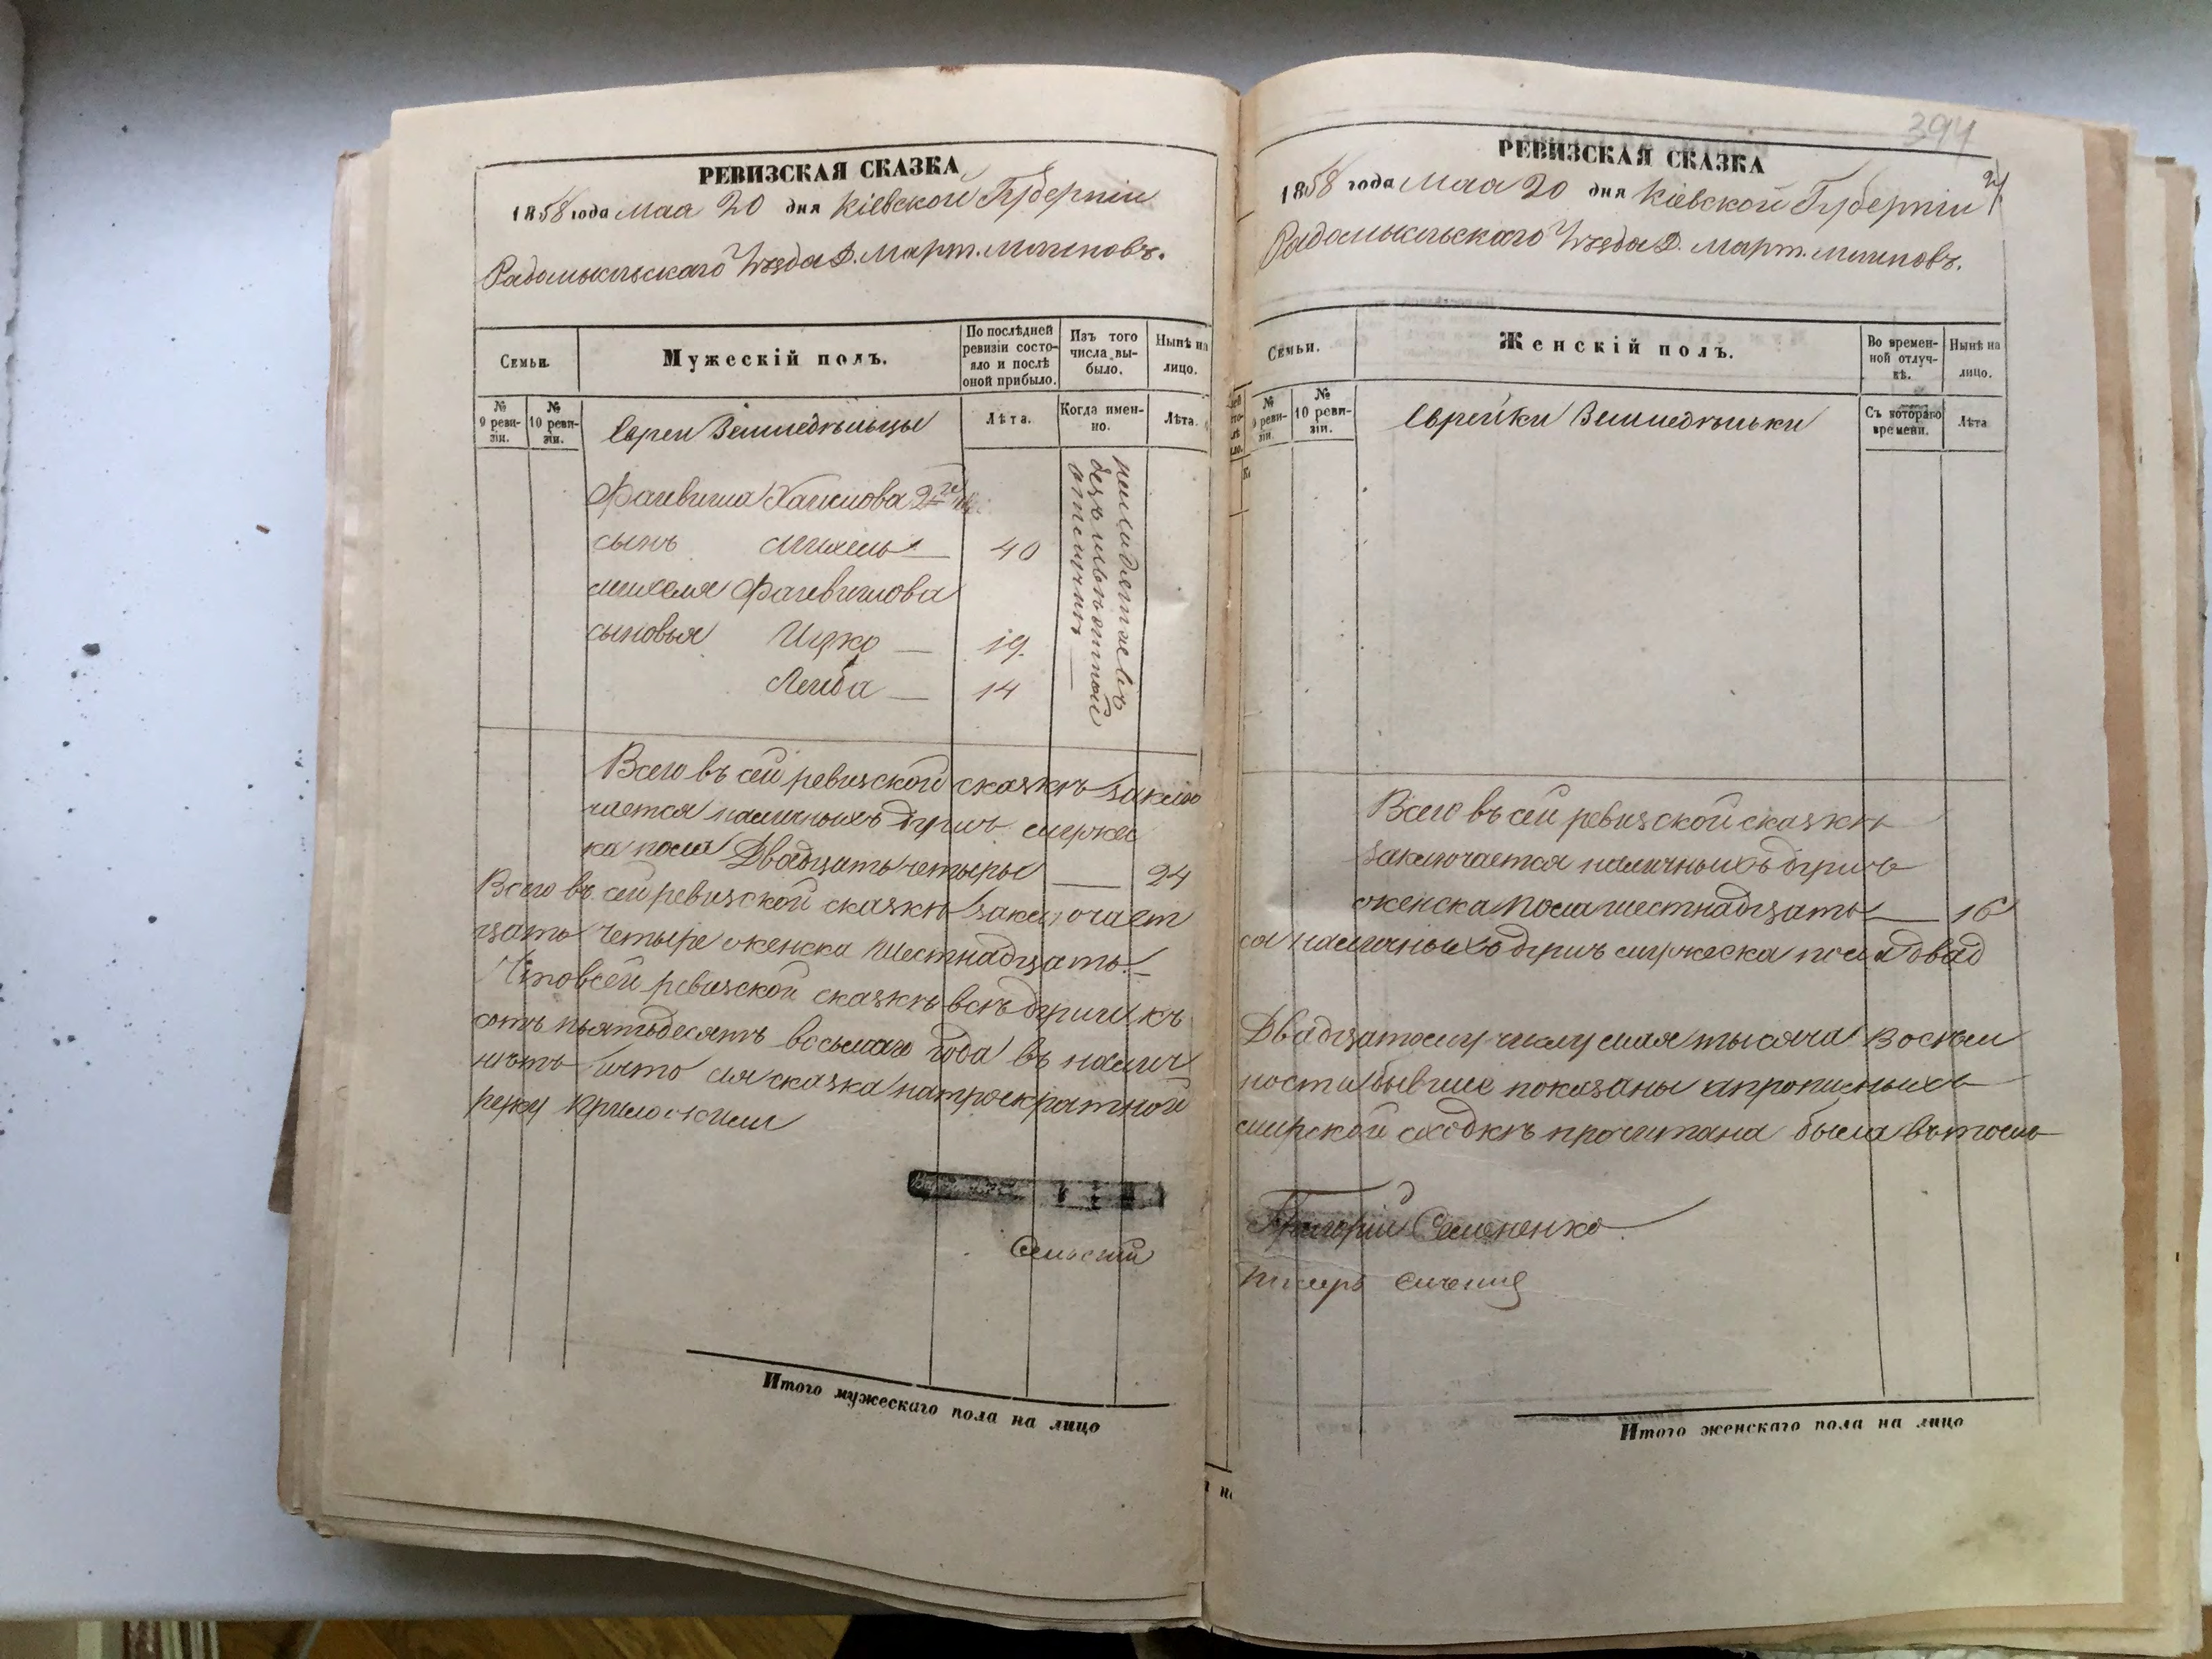 РЕВИЗСКАЯ СКАЗКА
1858 года Мая 20 дня Кіевской Губерніи
Радомысльскаго Уѣзда Д. Март.
Семьи.
Мужескій полъ.
По послѣдней ревизіи состояло и послѣ оной прибыло.
Изъ того числа выбыло.
Нынѣ на лицо.
№ 9 ревизіи.
№ 10 ревизіи.
Евреи Земледѣльцы
Лѣта.
Когда именно.
Лѣта.
Файвиша Хаимова 2й
сынъ Михель — 40
Михеля Файвишова
сыновья Ицко — 19.
Лейба — 14
находятся въ
безъизвѣстной
отлучкѣ —
Всего въ сей ревизской сказкѣ заклю
чается наличныхъ душъ мужес
ка пола Двадцать четыре — 24
Всего въ сей ревизской сказкѣ заключает
цать четыре женска шестнадцать.—
Что въ сей ревизской сказкѣ всѣ души къ
сотъ пьятьдесятъ восьмаго года въ налич
нѣтъ что сія сказка на троекратной
Сельскій
Итого мужескаго пола на лицо
394
РЕВИЗСКАЯ СКАЗКА
1858 года Мая 20 дня Кіевской Губерніи
Радомысльскаго Уѣзда Д. Март.
Семьи.
Женскій полъ.
Во временной отлучкѣ.
Нынѣ на лицо.
№ 9 ревизіи.
№ 10 ревизіи.
Еврейки Земледѣльки
Съ котораго времени.
Лѣта
Всего въ сей ревизской сказкѣ
заключается наличныхъ душъ
женска пола шестнадцать — 16
ся наличныхъ душъ мужеска пола двад
Двадцатому числу мая тысяча восем
ности бывшие показаны и прописныхъ
мирской сходкѣ прочитана была въ томъ
Григорій Семененко
писарь
Итого женскаго пола на лицо